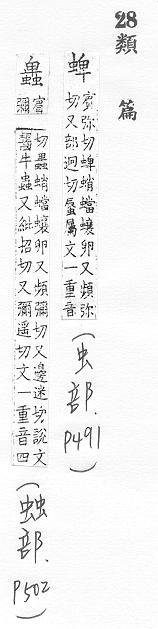 28
類篇
蜱
賔弥切蜱蛸蟷蠰卵又頻弥
切又部迥切蜃屬文一重音
(虫部.
P491)
蠯
賔彌
切蟲蛸蟷蠰卵又頻彌切又邊迷切說文
蠹牛蟲又紕招切又彌遥切文一重音四
(䖵部.
P502)